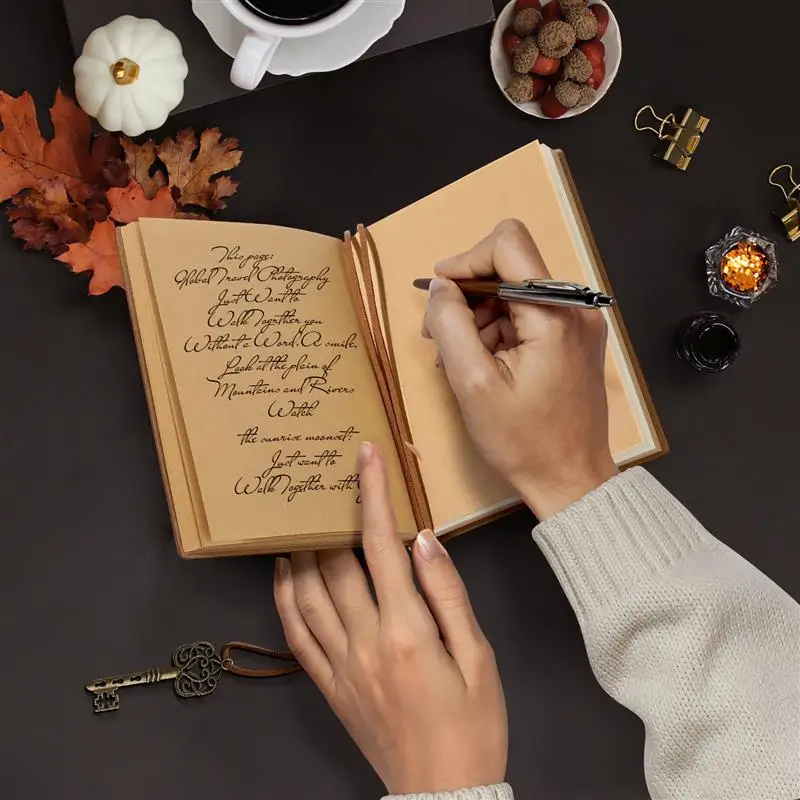 This page:
Global Travel Photography
Just Want to
Walk Together you
Without a Word. A smile,
Look at the plain of
Mountains and Rivers
Watch
the sunrise moonset:
Just want to
Walk Together with